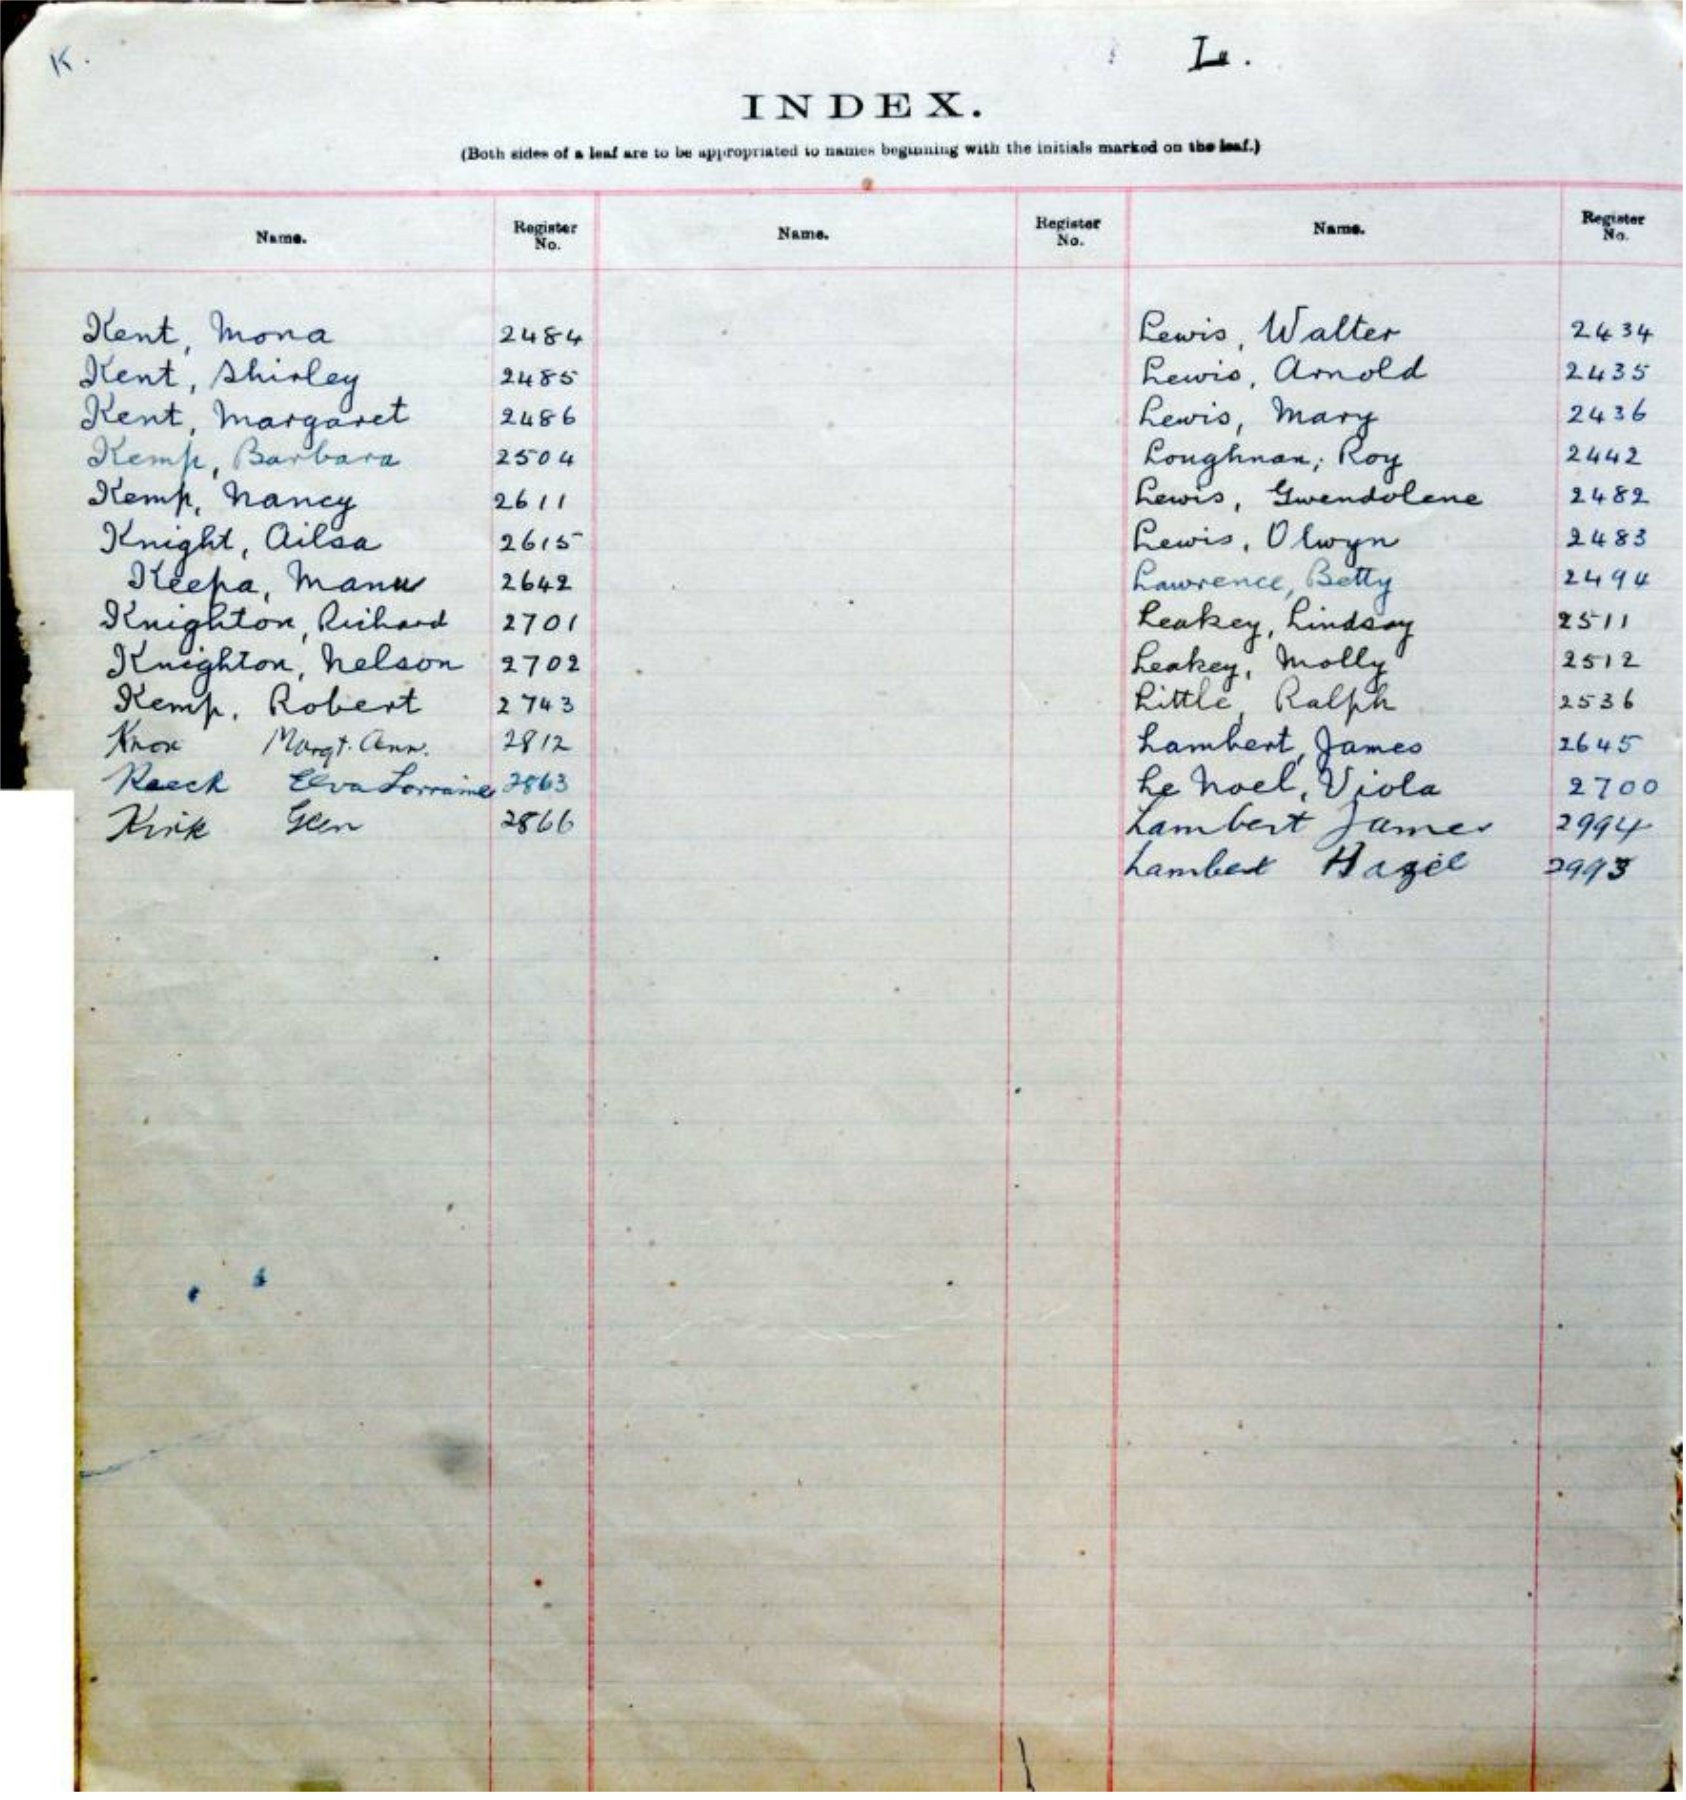 K. L.
INDEX.
(Both sides of a leaf are to be appropriated to names beginning with the initials marked on the leaf.)
Name. Register No. Name. Register No. Name. Register No.
Kent, Mona 2484 Lewis, Walter 2434
Kent, Shirley 2485 Lewis, Arnold 2435
Kent, Margaret 2486 Lewis, Mary 2436
Kemp, Barbara 2504 Loughnan, Roy 2442
Kemp, Nancy 2611 Lewis, Gwendolene 2482
Knight, Ailsa 2615 Lewis, Olwyn 2483
Keepa, Manu 2642 Lawrence, Betty 2494
Knighton, Richard 2701 Leakey, Lindsay 2511
Knighton, Nelson 2702 Leakey, Molly 2512
Kemp, Robert 2743 Little, Ralph 2536
Knox Margt. Ann. 2812 Lambert, James 2645
Elva Lorraine 2863 Le Noel, Viola 2700
Kirk Glen 2866 Lambert James 2994
Lambert Hazel 2993